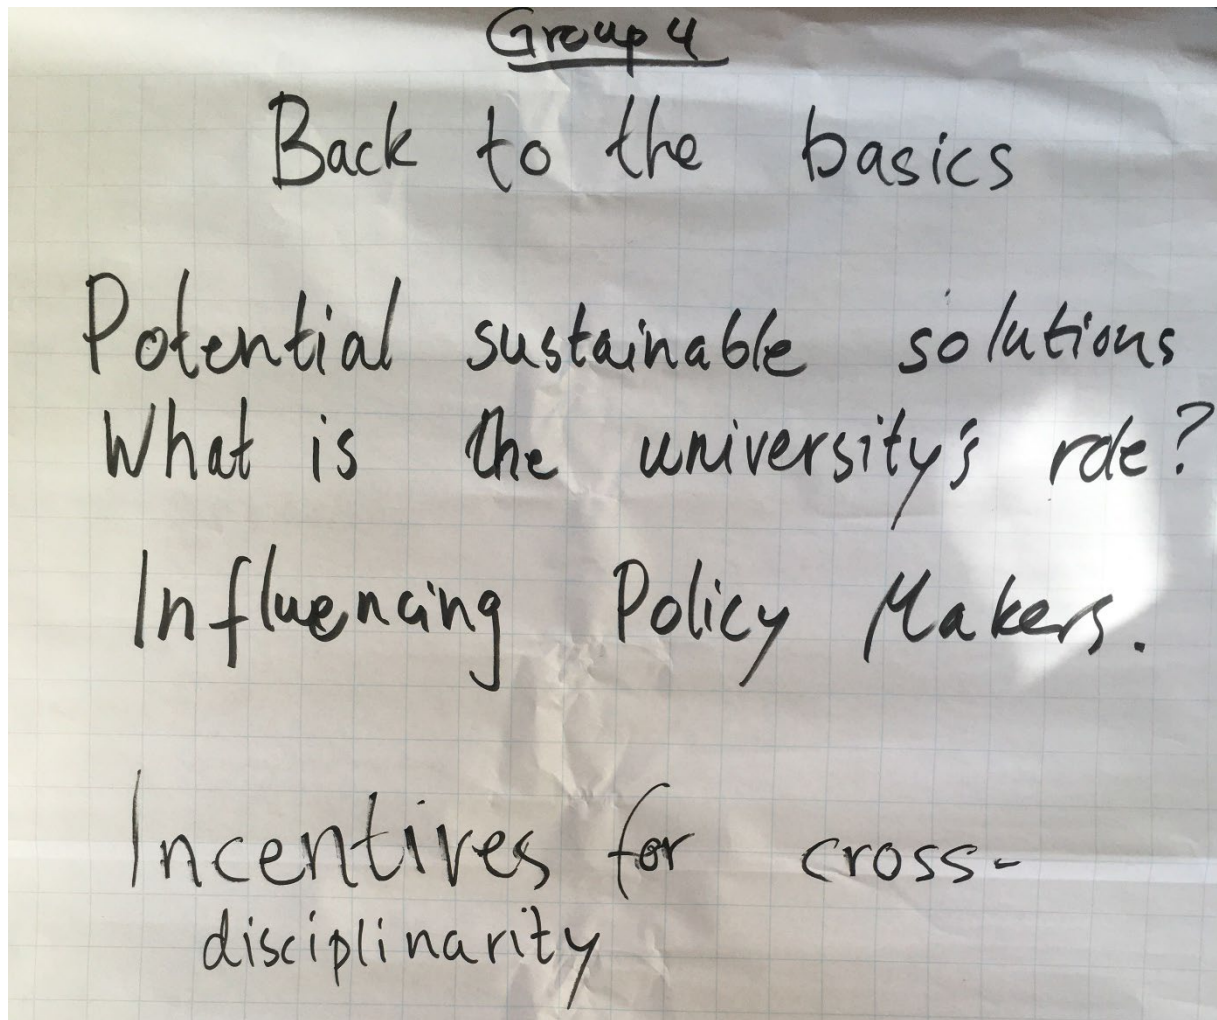 Group 4
Back to the basics
Potential sustainable solutions
What is the university's role?
Influencing Policy Makers.
Incentives for cross-
disciplinarity